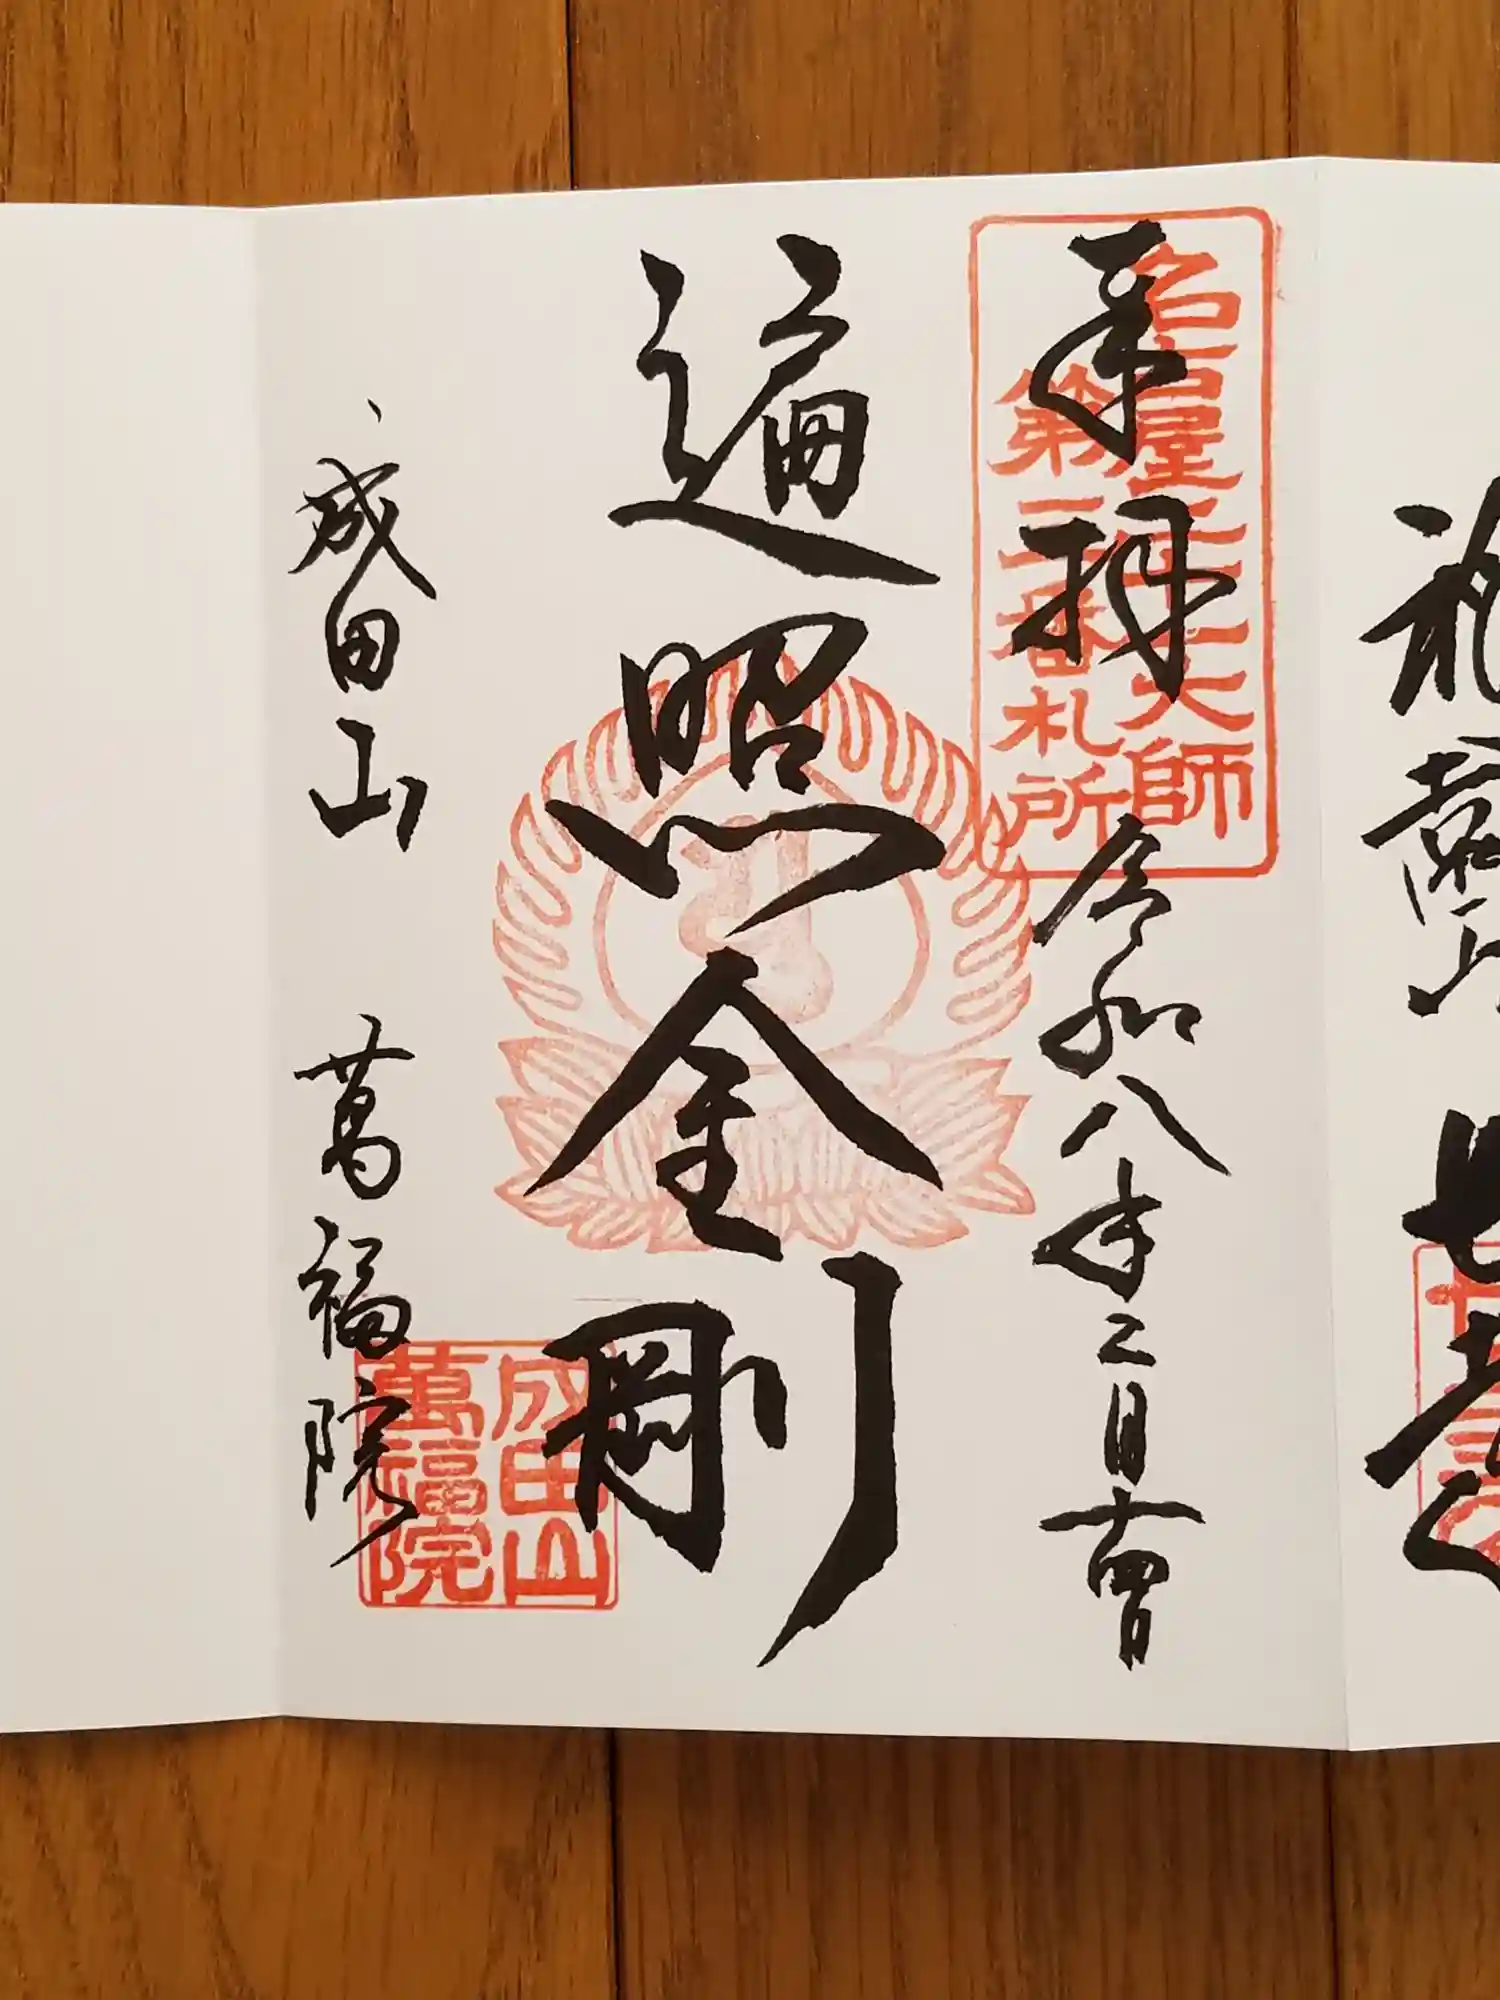 奉拝 令和八年二月十四日
名古屋二十一大師
第 番札所
遍照金剛
成田山 萬福院
成田山
萬福院